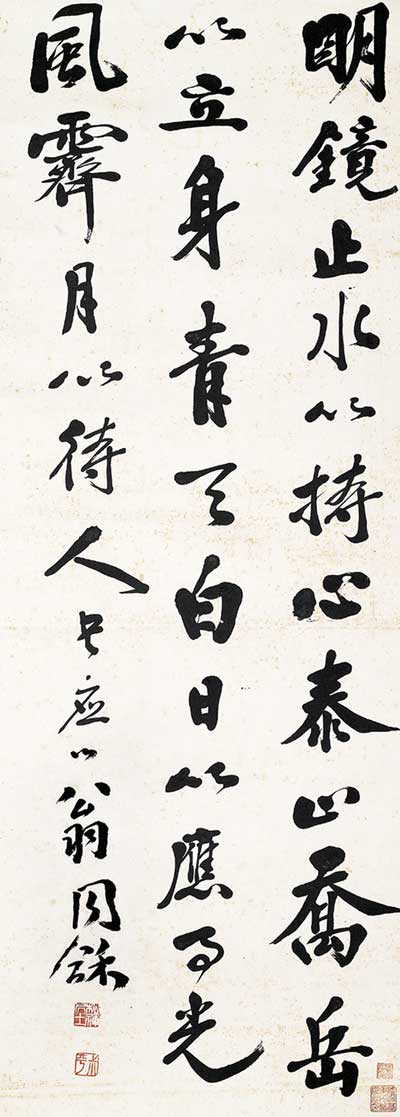 明鏡止水以持心泰山喬岳
以立身青天白日以應事光
風霽月以待人翁同龢